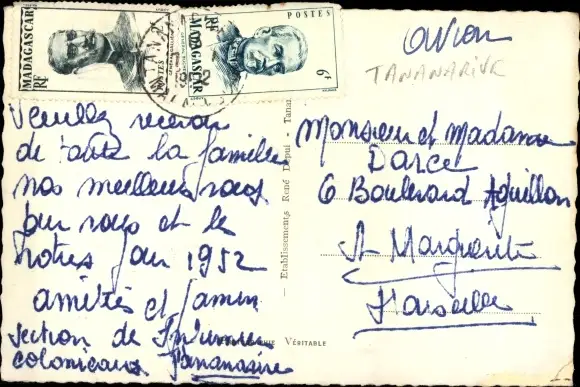 MADAGASCAR
RF
POSTES
POSTES
MADAGASCAR
RF
6F
avion
TANANARIVE
Veuillez recevoir
de toute la famille
nos meilleurs voeux
pour vous et les
votres Jan 1952
amitiés et
section de Infirmiers
coloniaux Tananarive
Etablissements René Depui - Tana
VÉRITABLE
Monsieur et Madame
Darce
6 Boulevard Aguillon
St Marguerite
Marseille